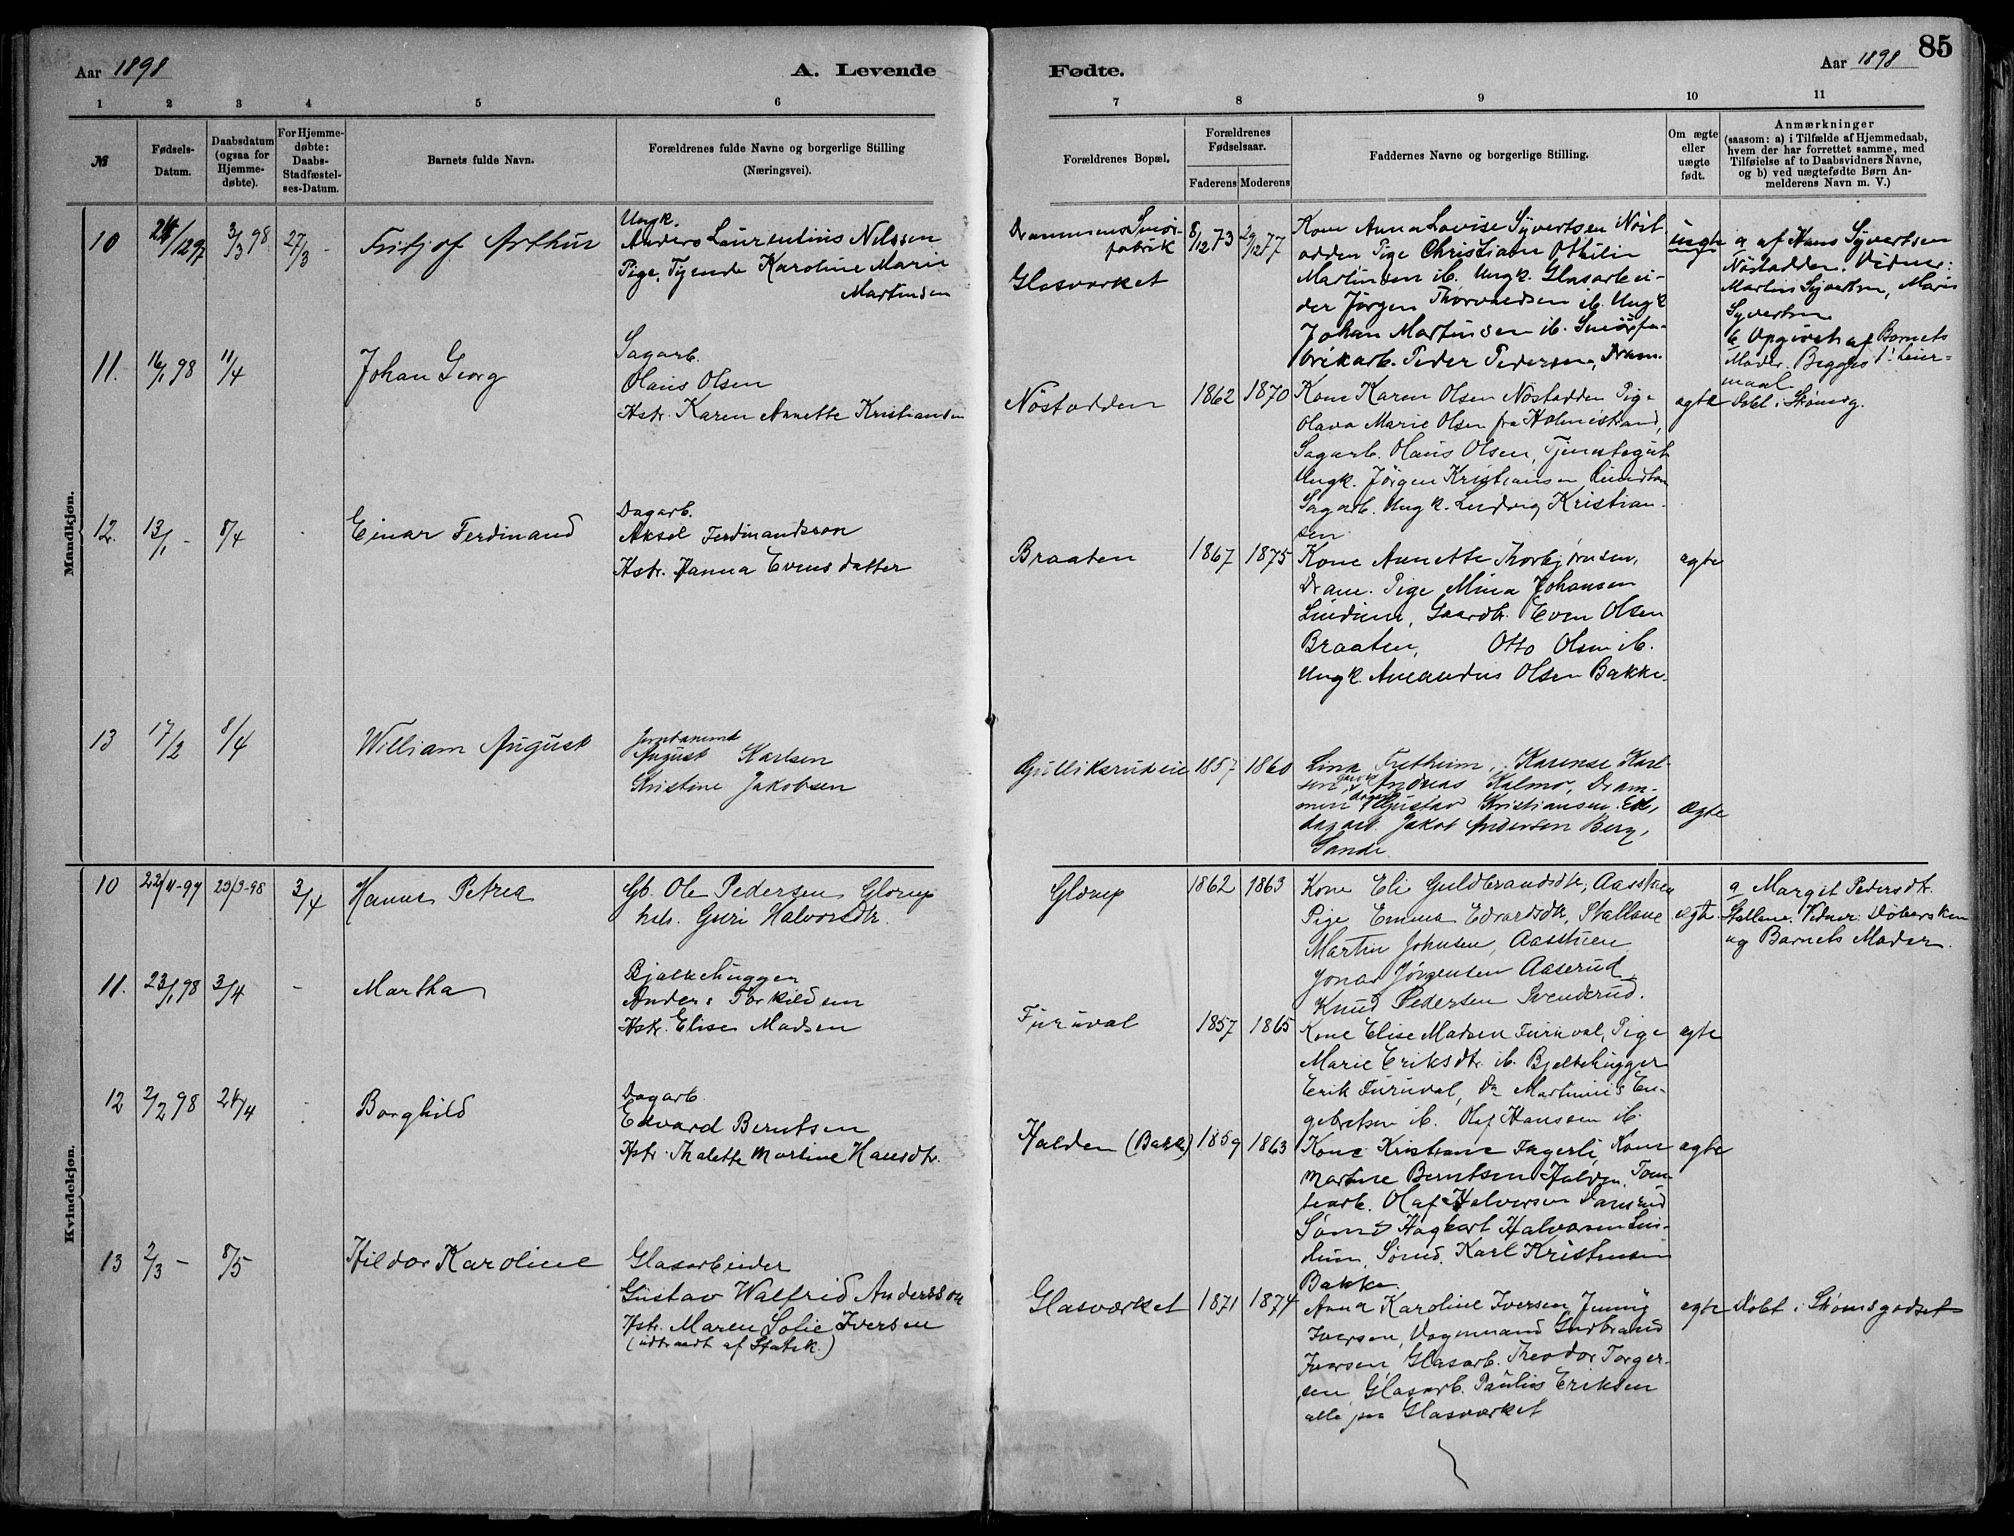 Aar 1898
A. Levende
1 2 3 4 5 6
№
Fødsels-
Datum.
Daabsdatum
(ogsaa for
Hjemme-
døbte).
For Hjemme-
døbte:
Daabs-
Stadfæstel-
ses-Datum.
Barnets fulde Navn.
Forældrenes fulde Navne og borgerlige Stilling
(Næringsvei).
Mandkjøn.
10 3/3 98 27/3 - Fritjof Arthur
Ungk.
Anders Laurentius Nilssen
Pige, Tyende Karoline Marie
Martinsen
11. 16/1 98 11/4 Johan Georg
Sagarb.
Olaus Olsen
Hstr. Karen Annette Kristiansen
12. 13/1 - 8/4 - Einar Ferdinand
Dagarb.
Aksel Ferdinandsson
Hstr. Hanna Evensdatter
13 17/2 8/4 William August
August Karlsen
Kristine Jakobsen
Kvindekjøn.
10 22/11-97 3/4 Hanna Petrea
Gb. Ole Pedersen Glorup
Guri Halvorsdtr.
11. 23/1 98 3/4 - Martha
Bjælkehugger
Anders Torkildsen
Hstr. Elise Madsen
12 2/2 98 24/4 - Borghild
Dagarb.
Edvard Berntsen
Hstr. Thalette Martine Hansdtr.
13 2/3 - 8/5 Hildor Karoline
Glasarbeider
Gustav Walfrid Andersson
Hstr. Maren Sofie Iversen
(udtraadt af Statsk.)
85
Fødte.
Aar 1898
7 8 9 10 11
Forældrenes Bopæl.
Forældrenes
Fødselsaar.
Faderens Moderens
Faddernes Navne og borgerlige Stilling.
Om ægte
eller
uægte
født.
Anmærkninger
(saasom: a) i Tilfælde af Hjemmedaab,
hvem der har forrettet samme, med
Tilføielse af to Daabsvidners Navne,
og b) ved uægtefødte Børn An-
melderens Navn m. V.)
Drammens Smør-
fabrik
Glasværket
8/12 73 29/12 77
Kone Anna Lovise Syvertsen Nøst-
odden Pige Christiane Othilie
Martinsen ib. Ungk. Glasarbei-
der Jørgen Thorvaldsen ib. Ungk
Johan Martinsen ib. Smørfa-
brikarb. Peder Pedersen, Dram.
uegte
a af Hans Syvertsen
Nøstodden. Vidner:
Martin Syvertsen, Maris
Syvertsen
b Opgivet af Barnets
Moder. Begges 1' Leier-
maal.
Nøstodden 1862 1870
Kone Karen Olsen Nøstodden Pige
Olava Marie Olsen fra Holmestrand,
Sagarb. Olaus Olsen, Tjenestegut
Ungk. Jørgen Kristiansen
Sagarb. Ungk. Ludvig Kristian-
sen
ægte Døbt i Strømsg.
Braaten 1867 1875
Kone Annette Thorbjørnsen,
Dram. Pige Mina Johansen
Lindum, Gaardbr. Even Olsen
Braaten, Otto Olsen ib.
Ungk. Amandus Olsen Bakke.
ægte
Gulliksrudeie 1857 1860
Lina Fretheim, Karense Karl-
sen, Andreas Kalmo, Dram-
men, Gustav Kristiansen
dagarb. Jakob Andersen Berg,
Sande
Ægte
Glorup 1862 1863
Kone Eli Guldbrandsdtr, Aasstuen
Pige Emma Edvardsdtr, Stallane
Martin Johnsen, Aasstuen
Jonas Jørgensen Aaserud
Knud Pedersen Svenserud.
ægte
a Margit Pedersdtr.
Stallene. Vidner:
og Barnets Moder.
Furuval 1857 1865
Kone Elise Madsen Furuval, Pige
Marie Eriksdtr. ib. Bjelkehugger
Erik Furuval, Do Martinius En-
gebretsen ib. Olaf Hanssen ib.
ægte
Halden (Bakke) 1859 1863
Kone Kristiane Fagerli, Kone
Martine Berntsen Halden, Tom-
tearb. Olaf Halvorsen
Hagbart Halvorsen Lin-
dum, Karl Kristensen
Bakke
ægte
Glasværket 1871 1874
Anna Karoline Iversen Jenny
Iversen, Vognmand Gudbrand
Iversen, Glasarb. Theodor Torger-
sen Glasarb. Paulus Eriksen
alle paa Glasværket
ægte Døbt i Strømsgodset